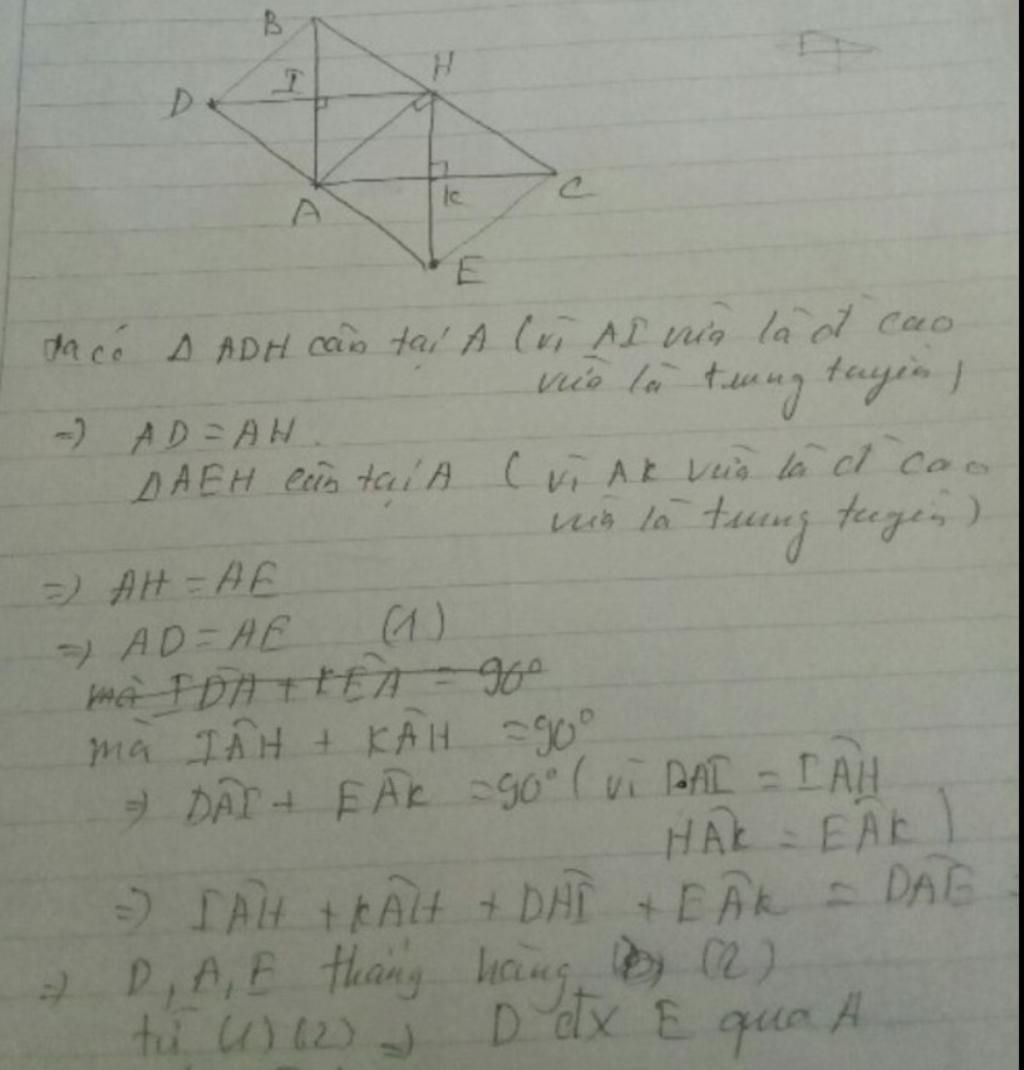 B
H
D I
A K C
E
ta có Δ ADH cân tại A (vì AI vừa là đ cao
vừa là trung tuyến)
=> AD = AH.
ΔAEH cân tại A ( vì AK vừa là đ cao
vừa là trung tuyến)
=> AH = AE
=> AD = AE (1)
mà IDA + KEA = 90°
mà IÂH + KÂH = 90°
=> DÂI + EÂK = 90° ( vì DÂI = IÂH
HÂK = EÂK )
=> IÂH + KÂH + DÂI + EÂK = DÂE =
=> D, A, E thẳng hàng (2)
từ (1) (2) => D đx E qua A